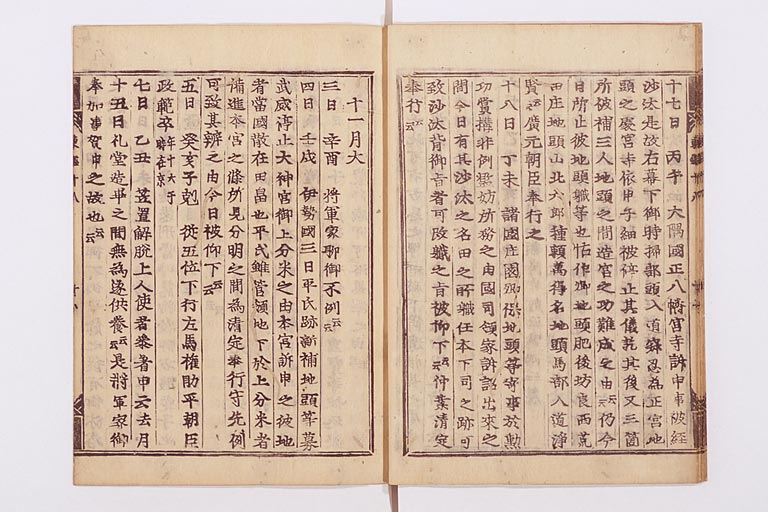 十七日　丙午　大隅國正八幡宮寺訴申事被經
沙汰是故右幕下御時掃部頭入道寂忍為正宮地
頭之處宮寺依申子細被停止其儀訖其後又三箇
所被補三人地頭之間造宮之功難成之由云々仍今
日所止彼地頭職等也帖作御地頭肥後坊良西荒
田庄地頭山北六郎種頼萬得名地頭馬部入道淨
賢云々廣元朝臣奉行之
十八日　丁未　諸國庄園郷保地頭等寄事於勲
功賞構非例濫妨所務之由國司領家訴訟出來之
間今日有其沙汰之名田之所職任本下司之跡可
致沙汰背御旨者可改職之旨被仰下云々仲業清定
奉行云々
十一月大
三日　辛酉　將軍家聊御不例云々
四日　壬戌　伊勢國三日平氏跡新補地頭等募
武威停止大神宮御上分米之由本宮訴申之彼地
者當國散在田畠也平氏雖管領地下於上分米者
備進本宮之條所見分明之間為清定奉行守先例
可致其辨之由今日被仰下云々
五日　癸亥子剋　従五位下行左馬權助平朝臣
政範卒年十六于時在京
七日　乙丑　笠置解脱上人使者參着申云去月
十五日礼堂造畢之間無為遂供養云々是將軍家御
奉加事賀申之故也云々